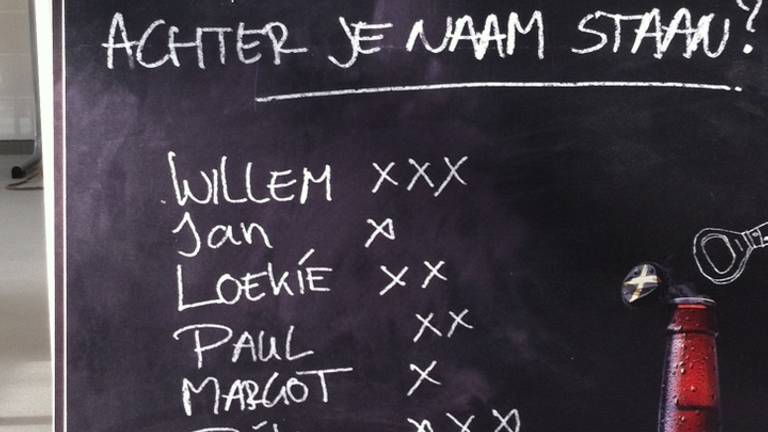 ACHTER JE NAAM STAAN?
WILLEM XXX
Jan X
LOEKIE XX
PAUL XX
MARGOT X
XXX